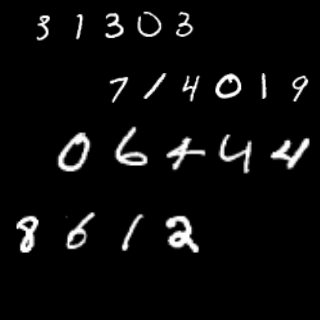 31303
714019
06444
8612